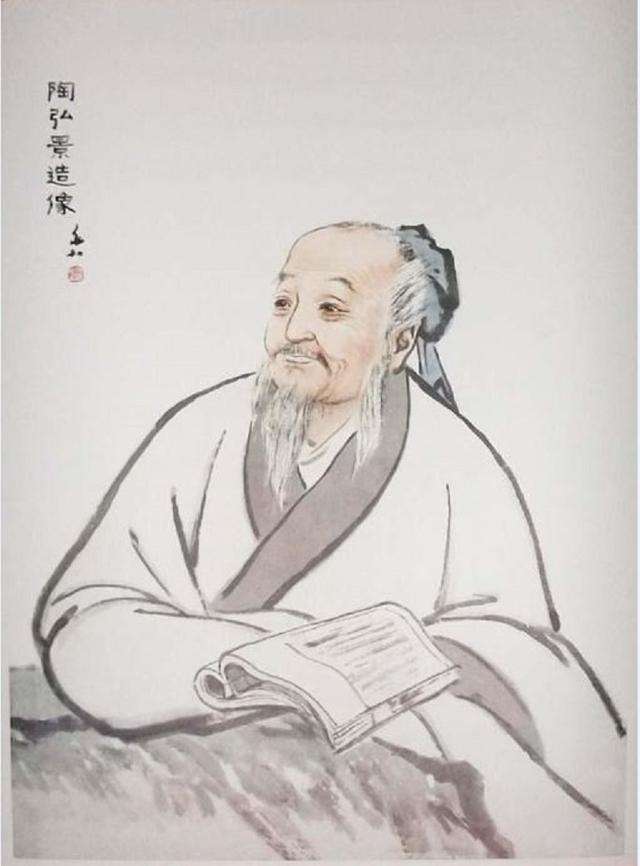 陶弘景造像